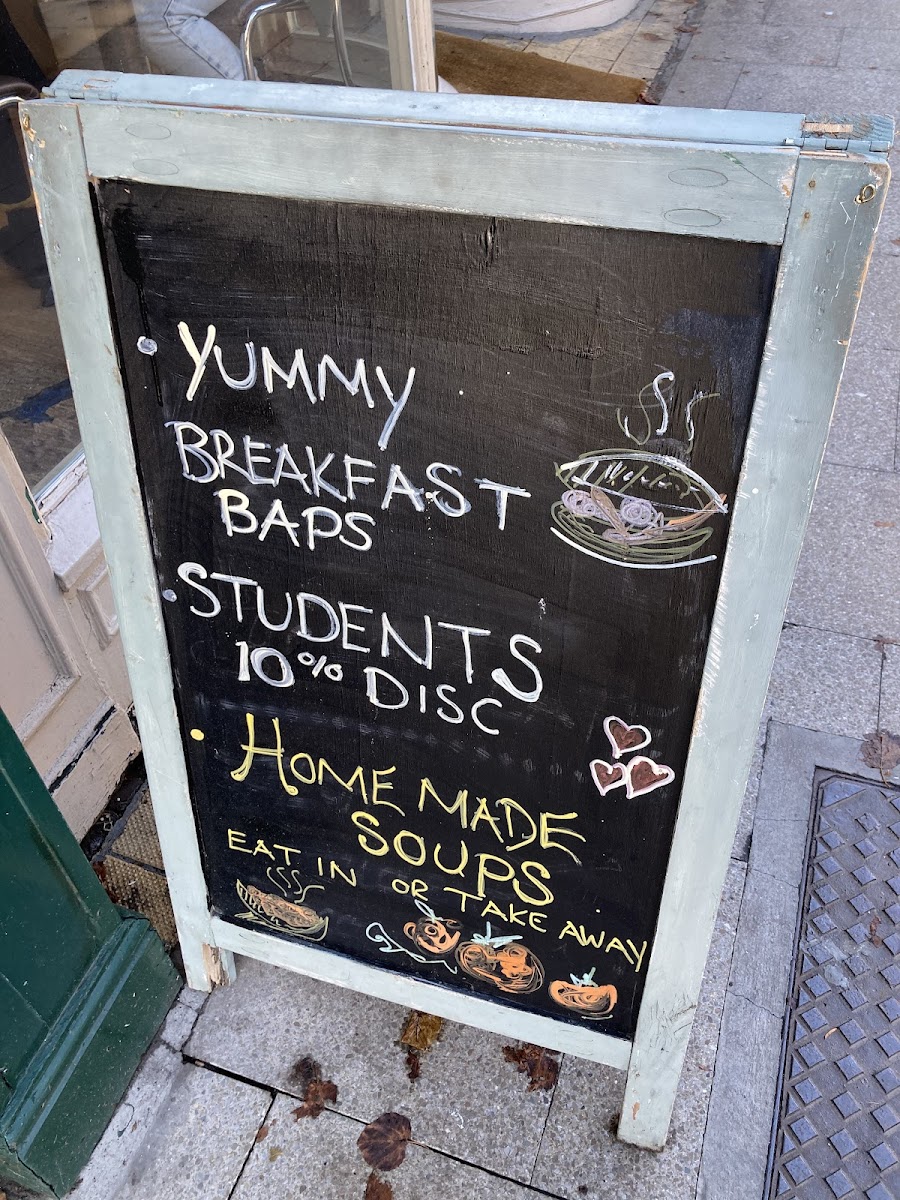 • YUMMY
BREAKFAST
BAPS
• STUDENTS
10% DISC
• HOME MADE
SOUPS
EAT IN OR TAKE AWAY